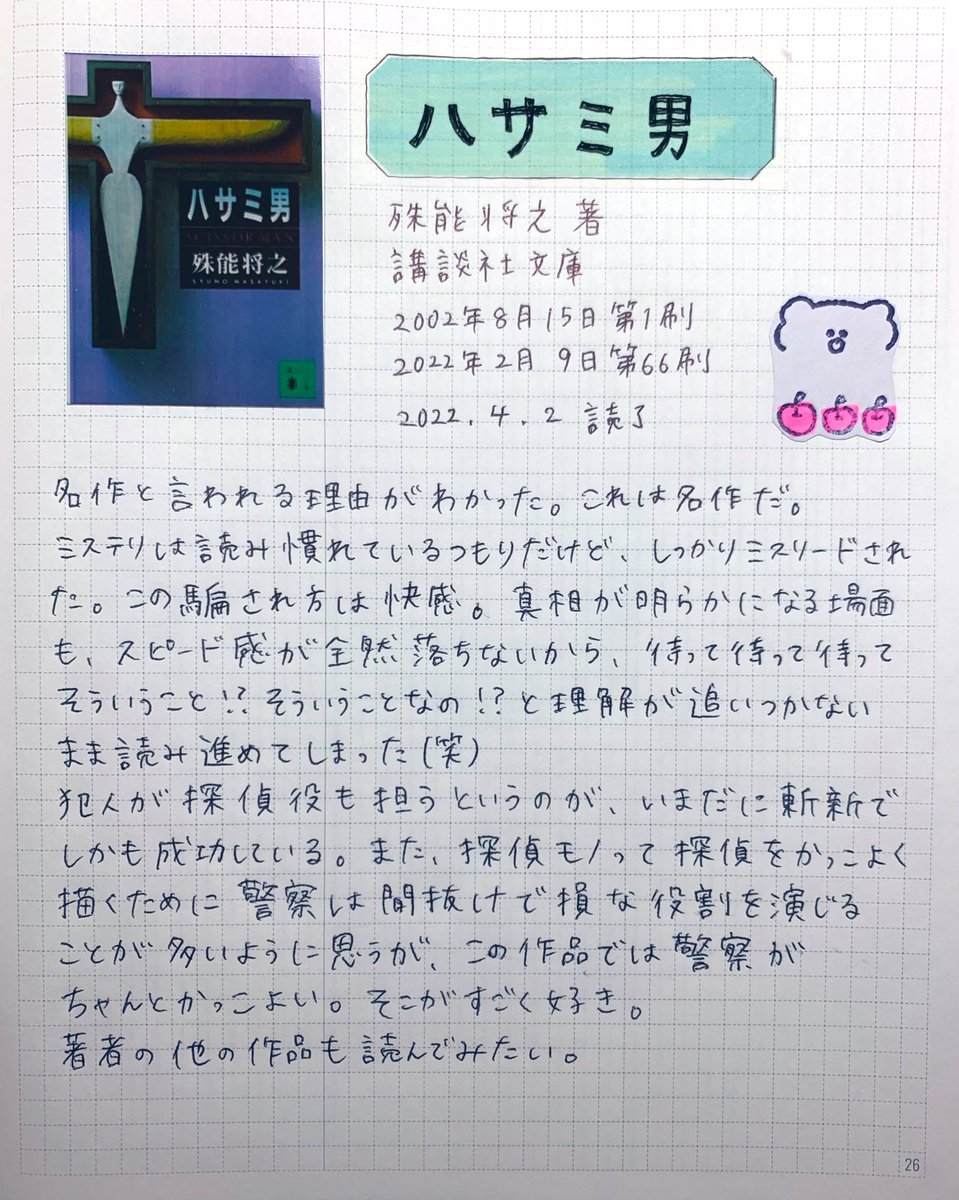 ハサミ男
SCISSOR MAN
殊能将之
SYUNO MASAYUKI
ハサミ男
殊能将之 著
講談社文庫
2002年8月15日第1刷
2022年2月9日第66刷
2022.4.2 読了
名作と言われる理由がわかった。これは名作だ。
ミステリは読み慣れているつもりだけど、しっかりミスリードされ
た。この騙され方は快感。真相が明らかになる場面
も、スピード感が全然落ちないから、待って待って待って
そういうこと!?そういうことなの!?と理解が追いつかない
まま読み進めてしまった(笑)
犯人が探偵役も担うというのが、いまだに斬新で
しかも成功している。また、探偵モノって探偵をかっこよく
描くために警察は間抜けで損な役割を演じる
ことが多いように思うが、この作品では警察が
ちゃんとかっこよい。そこがすごく好き。
著者の他の作品も読んでみたい。
26